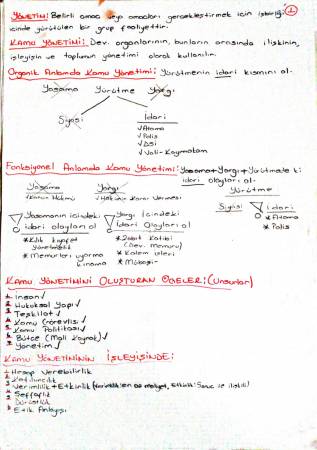 YÖNETİM: Belirli amaç veya amaçları gerçekleştirmek için işbirliği 1
içinde yürütülen bir grup faaliyettir.
KAMU YÖNETİMİ: Dev. organlarının, bunların arasında ilişkinin,
işleyişin ve toplumun yönetimi olarak kullanılır.
Organik Anlamda Kamu Yönetimi: Yürütmenin idari kısmını al.
Yasama Yürütme Yargı
Siyasi İdari
✓Atama
✓Polis
✓DSİ
✓Vali-Kaymakam
Fonksiyonel Anlamda Kamu Yönetimi: Yasama+Yargı+Yürütmede ki
idari olayları al.
Yasama Yargı Yürütme
✓Kanun Hükmü ✓Hakimin Karar Vermesi Siyasi İdari
Yasamanın içindeki Yargı İçindeki * Atama
idari olayları al İdari Olayları al * Polis
* Kılık kıyafet * Zabıt Katibi
Yönetmeliği (Dev. Memuru)
* Memurları uyarma * Kalem işleri
kınama * Mübaşir
KAMU YÖNETİMİNİ OLUŞTURAN ÖGELER: (Unsurlar)
1. İnsan ✓
2. Hukuksal Yapı ✓
3. Teşkilat ✓
4. Kamu Görevlisi ✓
5. Kamu Politikası ✓
6. Bütçe (Mali Kaynak) ✓
7. Yönetim ✓
KAMU YÖNETİMİNİN İŞLEYİŞİNDE:
1. Hesap Verebilirlik
2. Katılımcılık
3. Verimlilik+Etkinlik (Verimlilik en az maliyet, Etkinlik: Sonuç ile ilişkili)
4. Şeffaflık
5. Dürüstlük
6. Etik Anlayışı